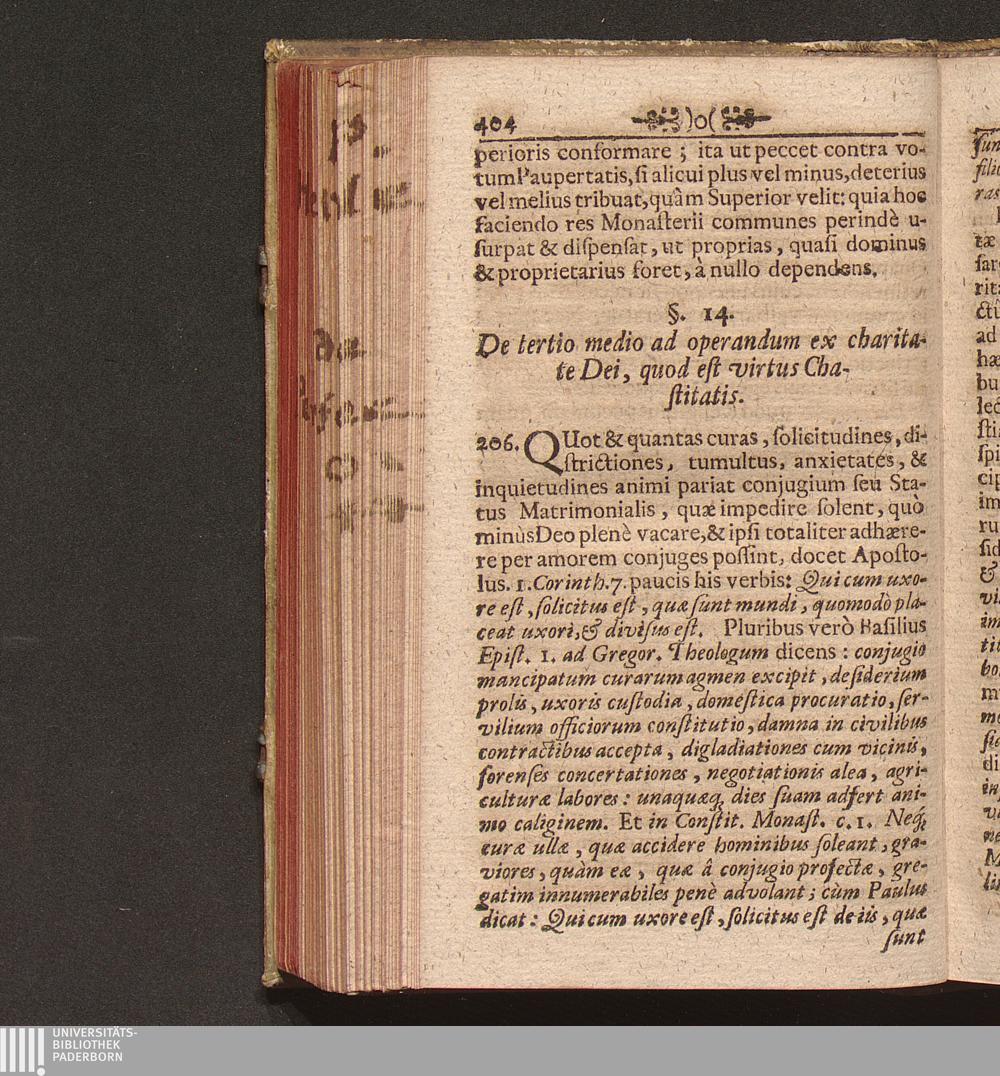 404 )o(
perioris conformare ; ita ut peccet contra vo-
tum Paupertatis, ſi alicui plus vel minus, deterius
vel melius tribuat, quàm Superior velit: quia hoc
faciendo res Monaſterii communes perindè u-
ſurpat & diſpenſat, ut proprias, quaſi dominus
& proprietarius foret, à nullo dependens.
§. 14.
De tertio medio ad operandum ex charita-
te Dei, quod eſt virtus Cha-
ſtitatis.
206. QUot & quantas curas, ſolicitudines, di-
ſtrictiones, tumultus, anxietates, &
inquietudines animi pariat conjugium ſeu Sta-
tus Matrimonialis, quæ impedire ſolent, quò
minùs Deo plenè vacare, & ipſi totaliter adhære-
re per amorem conjuges poſſint, docet Apoſto-
lus. 1. Corinth. 7. paucis his verbis: Qui cum uxo-
re eſt, ſolicitus eſt, quæ ſunt mundi, quomodò pla-
ceat uxori, & diviſus eſt. Pluribus verò Baſilius
Epiſt. 1. ad Gregor. Theologum dicens : conjugio
mancipatum curarum agmen excipit, deſiderium
prolis, uxoris cuſtodia, domeſtica procuratio, ſer-
vilium officiorum conſtitutio, damna in civilibus
contractibus accepta, digladiationes cum vicinis,
forenſes concertationes, negotiationis alea, agri-
culturæ labores : unaquæq; dies ſuam adfert ani-
mo caliginem. Et in Conſtit. Monaſt. c. 1. Neq;
curæ ullæ, quæ accidere hominibus ſoleant, gra-
viores, quàm eæ, quæ â conjugio profectæ, gre-
gatim innumerabiles penè advolant ; cùm Paulus
dicat : Qui cum uxore eſt, ſolicitus eſt de iis, quæ
ſunt
UNIVERSITÄTS-
BIBLIOTHEK
PADERBORN